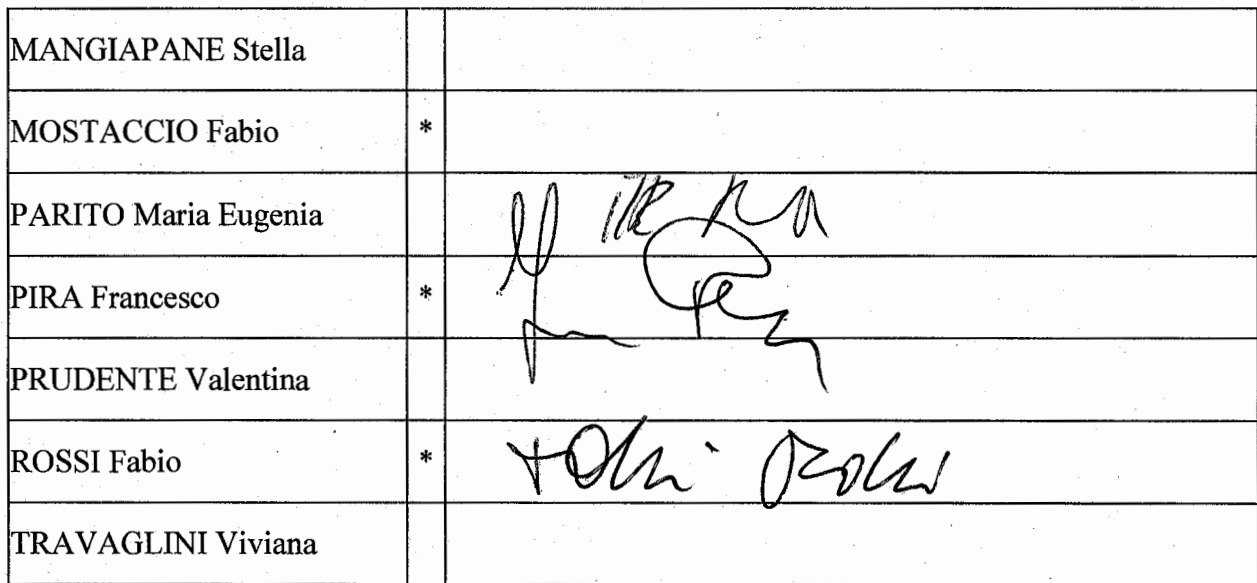 MANGIAPANE Stella
MOSTACCIO Fabio *
PARITO Maria Eugenia
PIRA Francesco *
PRUDENTE Valentina
ROSSI Fabio * Fabio Rossi
TRAVAGLINI Viviana